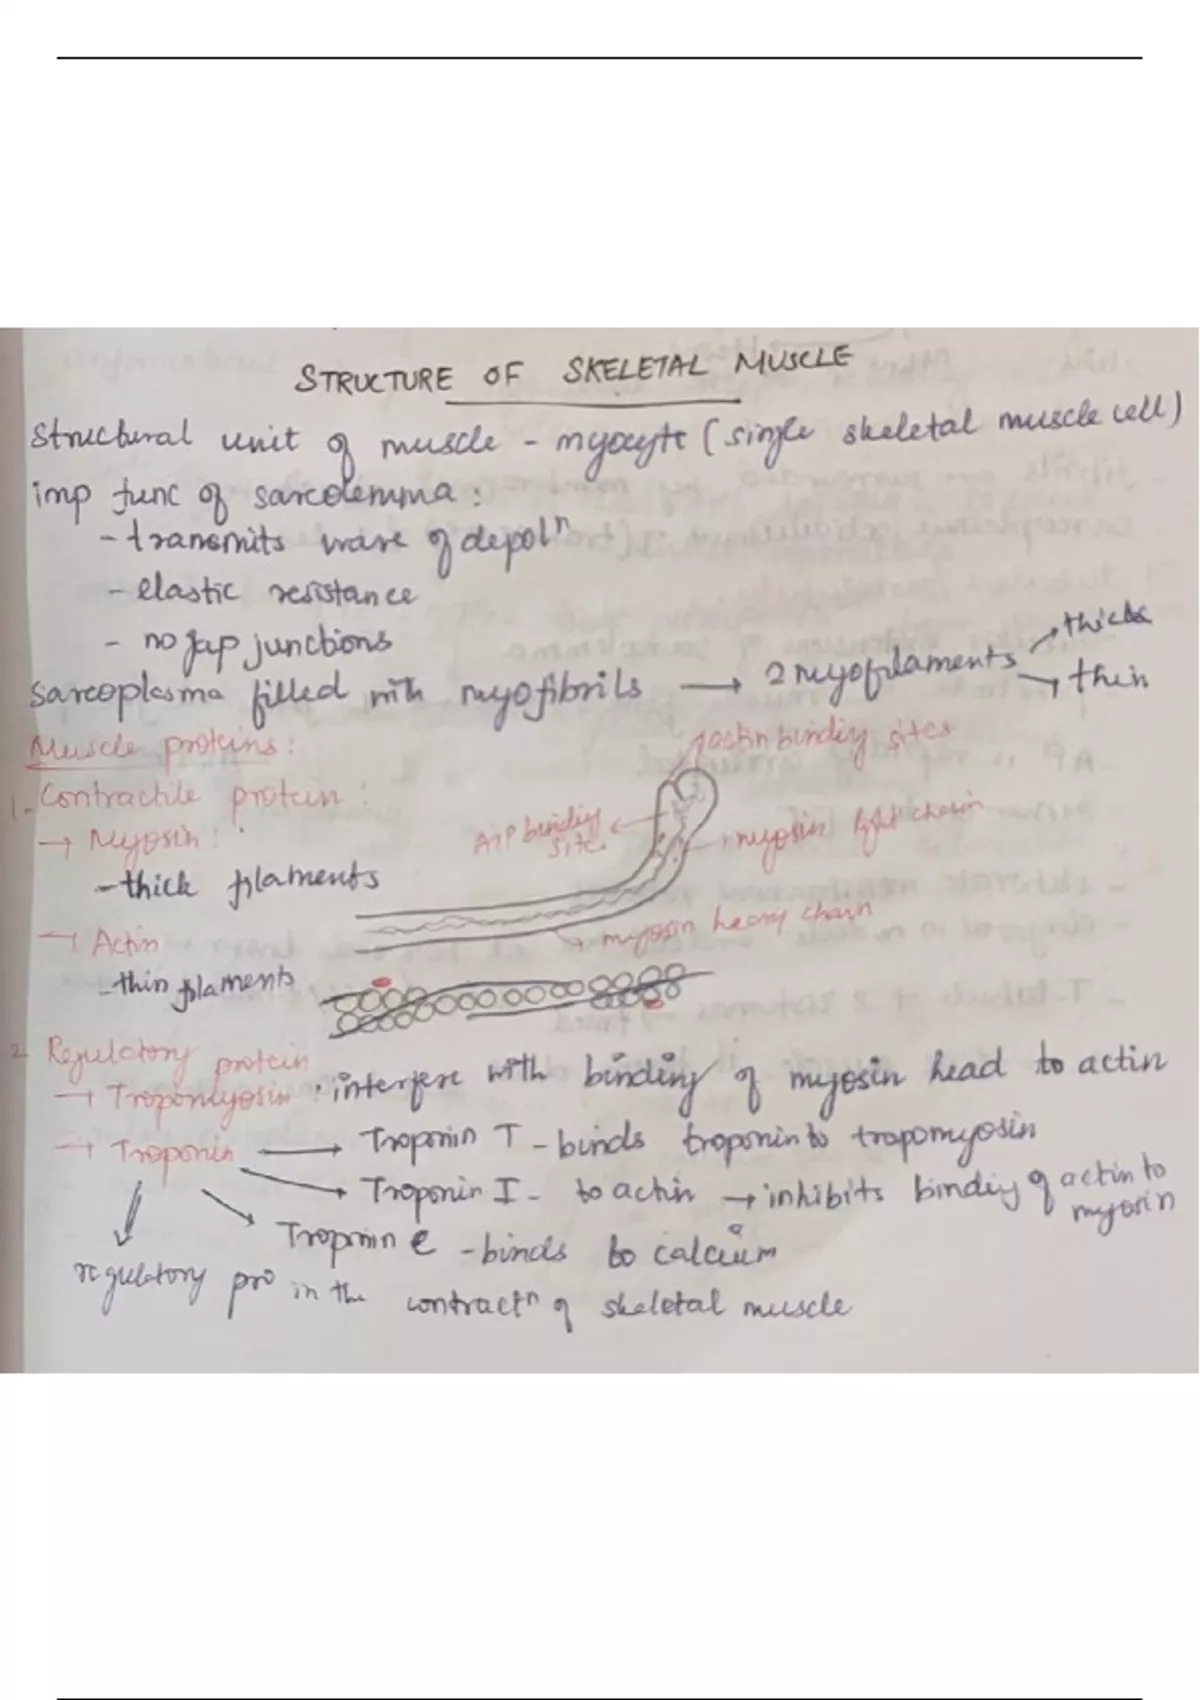 STRUCTURE OF SKELETAL MUSCLE
Structural unit of muscle - myocyte (single skeletal muscle cell)
imp func of sarcolemma :
- transmits wave of depolⁿ
- elastic resistance
- no gap junctions
Sarcoplasma filled with myofibrils → 2 myofilaments → thick
→ thin
Muscle proteins :
actin binding sites
1. Contractile protein :
→ Myosin :
ATP binding sites
myosin light chain
- thick filaments
myosin heavy chain
→ Actin
- thin filaments
2. Regulatory protein
→ Tropomyosin : interfere with binding of myosin head to actin
→ Troponin → Troponin T - binds troponin to tropomyosin
→ Troponin I - to actin → inhibits binding of actin to myosin
→ Troponin C - binds to calcium
regulatory pro in the contractⁿ of skeletal muscle